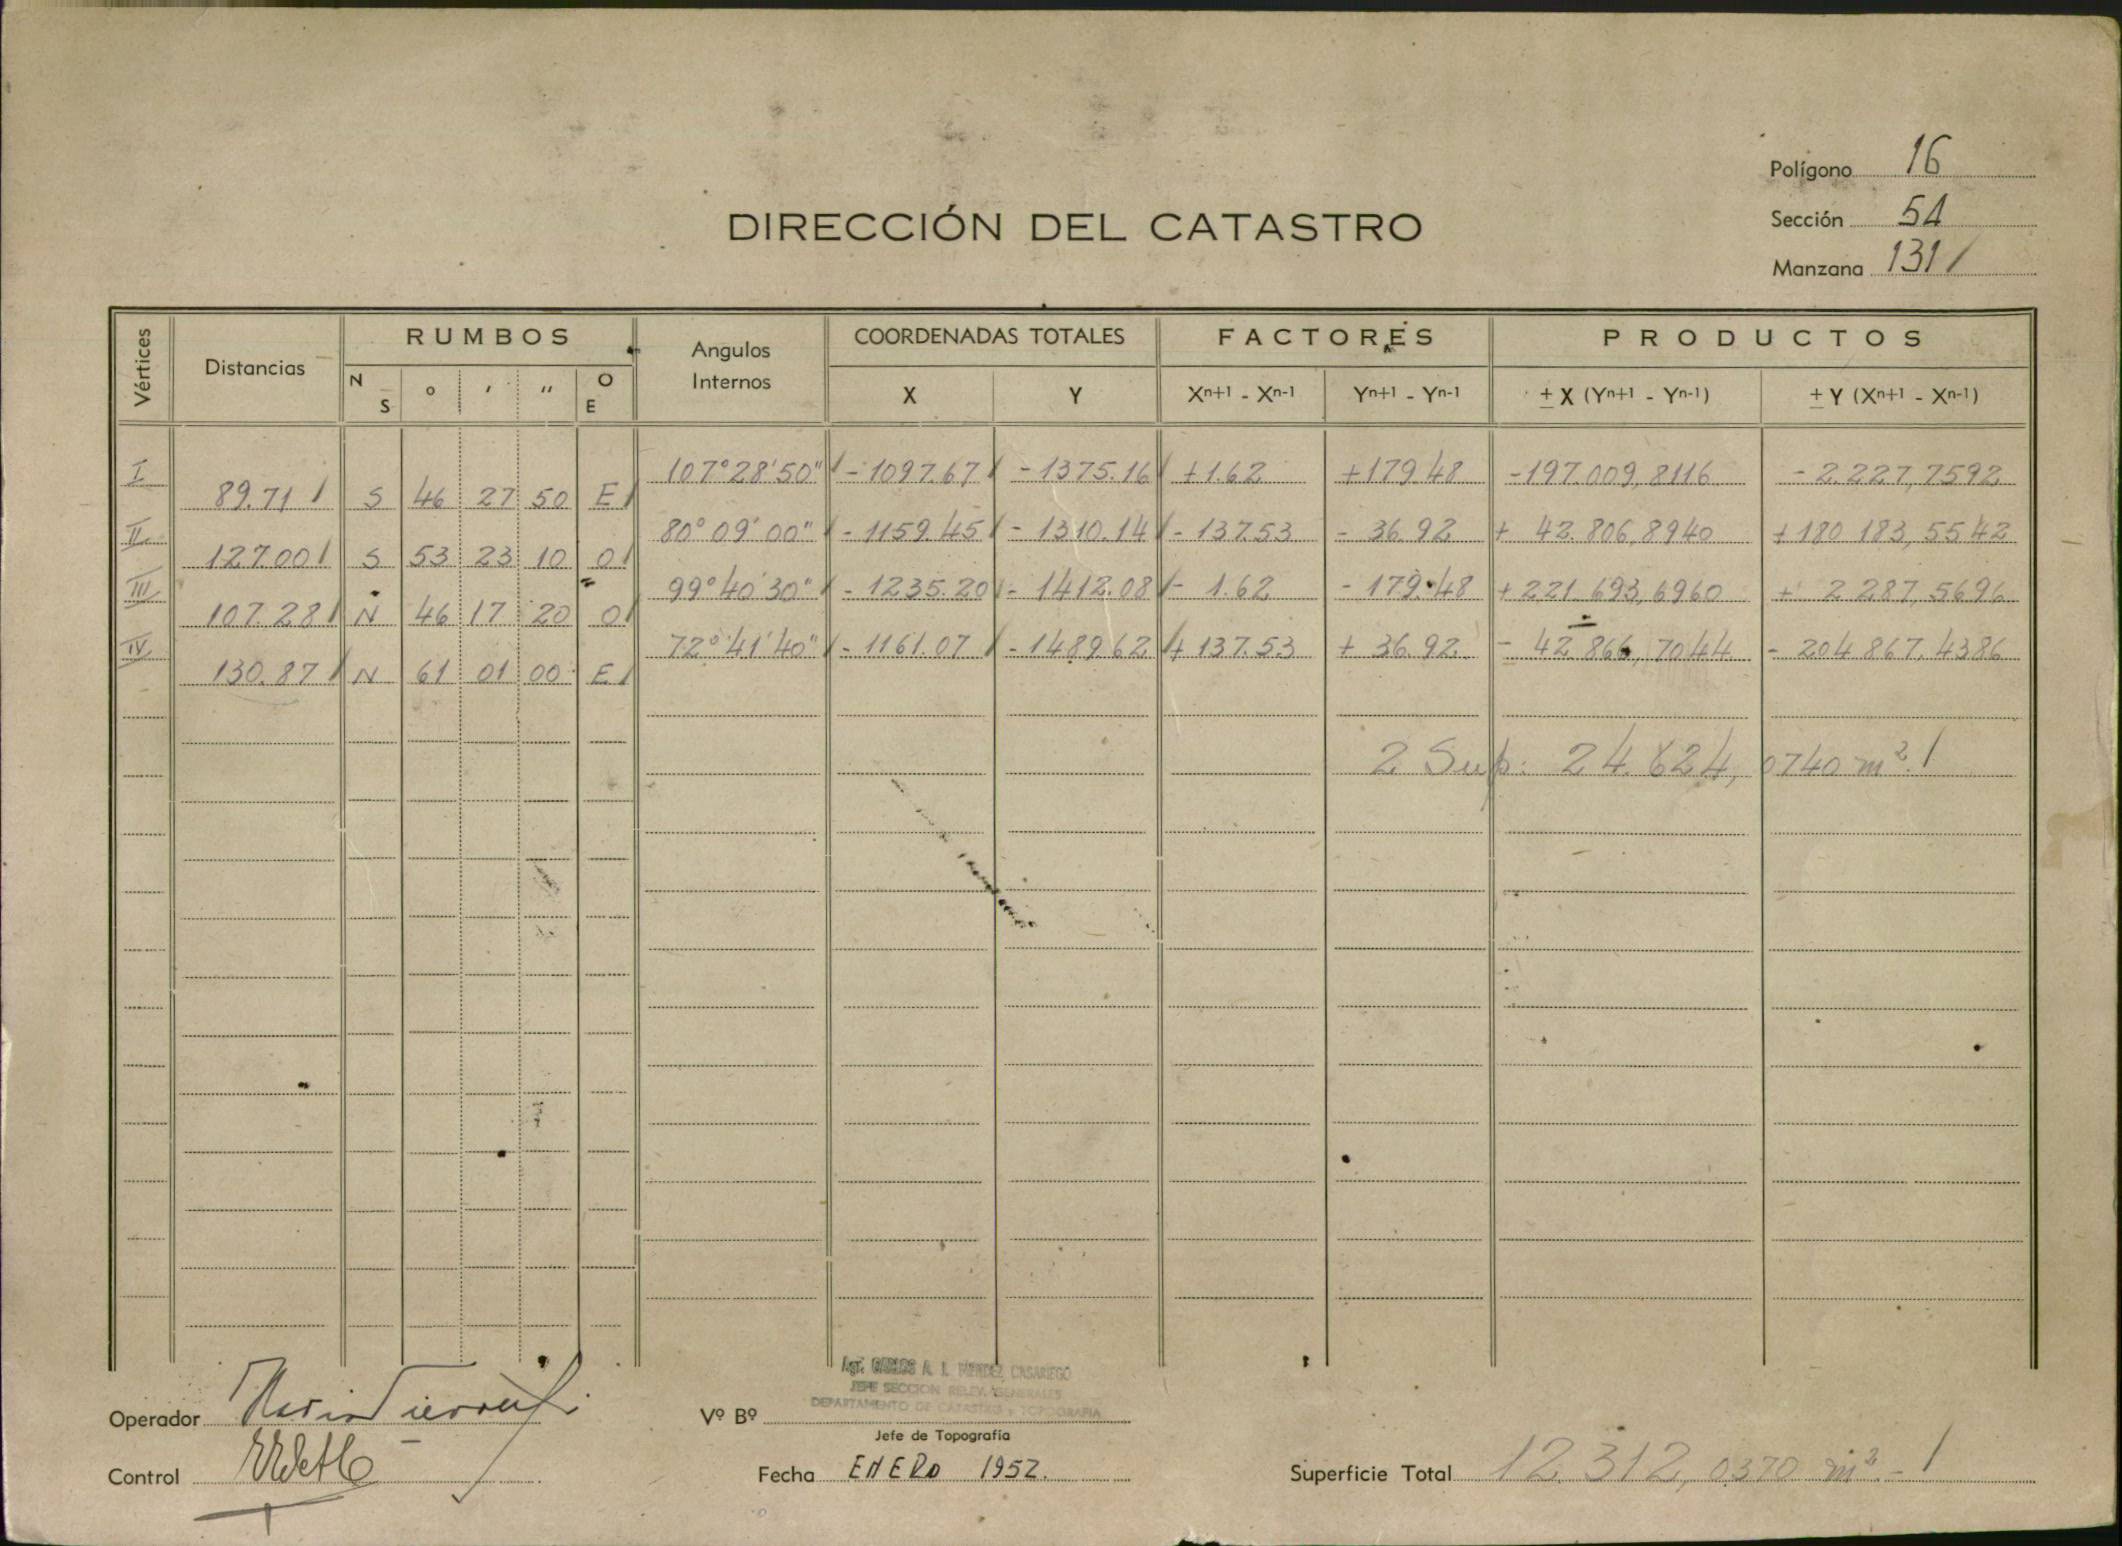 Polígono 16
Sección 54
Manzana 131 /
DIRECCIÓN DEL CATASTRO
Vértices Distancias RUMBOS Angulos Internos COORDENADAS TOTALES FACTORES PRODUCTOS
N S ° ' " O E X Y Xn+1 - Xn-1 Yn+1 - Yn-1 ± X (Yn+1 - Yn-1) ± Y (Xn+1 - Xn-1)
I 107°28'50" / - 1097.67 / - 1375.16 / + 1.62 + 179.48 - 197.009,8116 - 2.227,7592
89.71 / S 46 27 50 E /
II 80° 09' 00" / - 1159.45 / - 1310.14 / - 137.53 - 36.92 + 42.806,8940 + 180 183,5542
127.00 / S 53 23 10 O /
III 99° 40' 30" / - 1235.20 / - 1412.08 / - 1.62 - 179.48 + 221 693,6960 + 2 287,5696
107.28 / N 46 17 20 O /
IV 72° 41' 40" / - 1161.07 / - 1489.62 / + 137.53 + 36.92 - 42.866,7044 - 204 867.4386
130.87 / N 61 01 00 E /
2 Sup: 24.624,0740 m². /
Agr. CARLOS A. I. MENDEZ CASARIEGO
JEFE SECCION RELEV. GENERALES
DEPARTAMENTO DE CATASTRO y TOPOGRAFIA
Operador
Vº Bº
Jefe de Topografía
Control
Fecha ENERO 1952.
Superficie Total 12.312,0370 m² - /